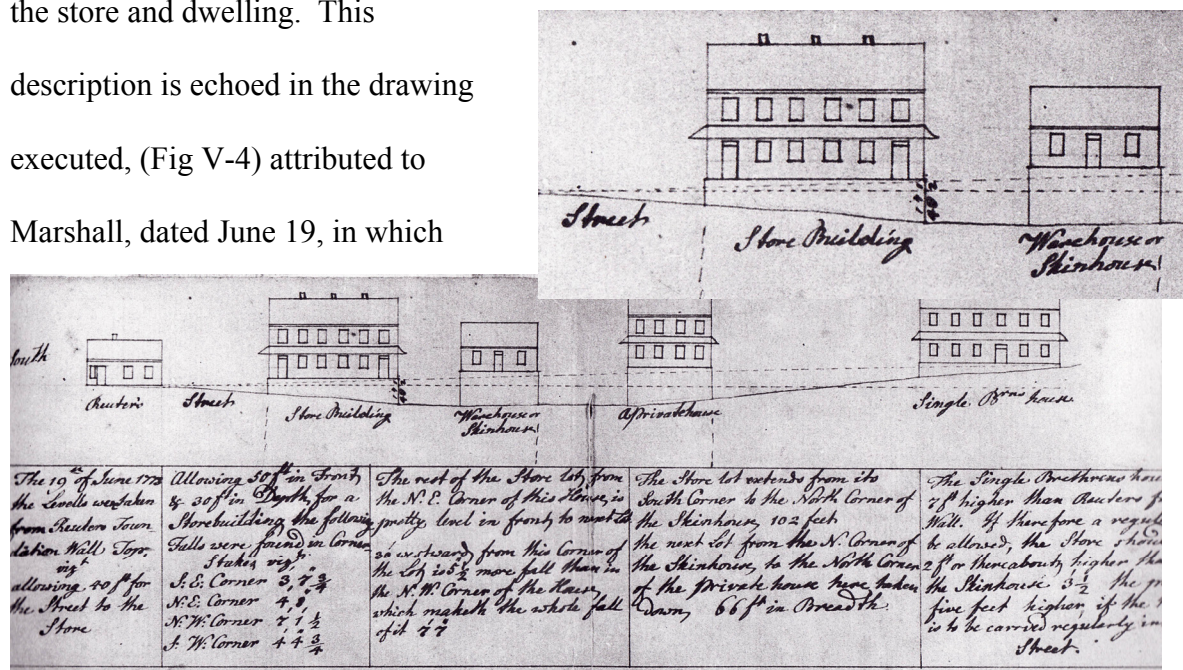 the store and dwelling. This
description is echoed in the drawing
executed, (Fig V-4) attributed to
Marshall, dated June 19, in which
Street
Store Building
Warehouse or
Skinhouse
South
Reuters
Street
Store Building
Warehouse or
Skinhouse
a Private house
Single Brns house
The 19th of June 1773
the Levells were taken
from Reuters Foun
dation Wall Top,
vizt
allowing 40 ft for
the Street to the
Store
Allowing 50 ft in Front,
& 30 ft in Depth, for a
Storebuilding the following
Falls were found in Corner
Stakes viz,
S. E. Corner 3, 7 3/4
N. E. Corner 4, 8,
N. W. Corner 7 1 1/2
S. W. Corner 4 4 3/4
The rest of the Store lot, from
the N. E. Corner of this House, is
pretty level in front, to next Lot
westward, from this Corner of
the Lot, is 5 1/2 more fall than in
the N. W. Corner of the House,
which maketh the whole fall
of it 7 7
The Store lot extends from its
South Corner to the North Corner of
the Skinhouse, 102 feet
the next Lot from the N. Corner of
the Skinhouse, to the North Corner
of the Private house here taken
down, 66 ft in Breadth.
The Single Brethrens hou
ft higher than Reuters
Wall. If therefore a regul
be allowed, the Store shou
2 ft or thereabouts, higher tha
the Skinhouse 3 1/2 the pr
five feet higher, if the
is to be carried regularly in
Street.